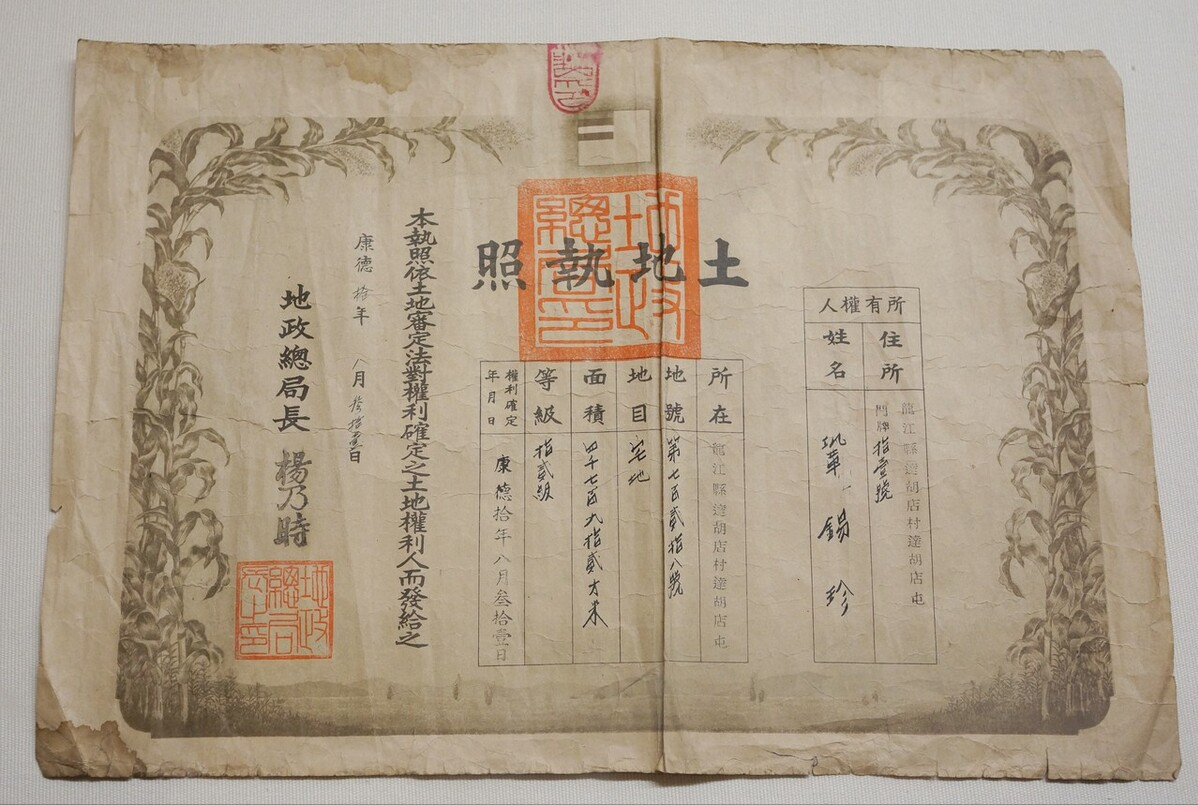 土地執照
所有權人
住所
龍江縣達胡店村達胡店屯
門牌拾壹號
姓名
鞏錫珍
所在
龍江縣達胡店村達胡店屯
地號
第七百貳拾八號
地目
宅地
面積
四千七百九拾貳方米
等級
拾貳級
權利確定
年月日
康德拾年八月叁拾壹日
本執照依土地審定法對權利確定之土地權利人而發給之
康德拾年八月叁拾壹日
地政總局長 楊乃時
地政總局印
地政總局長印